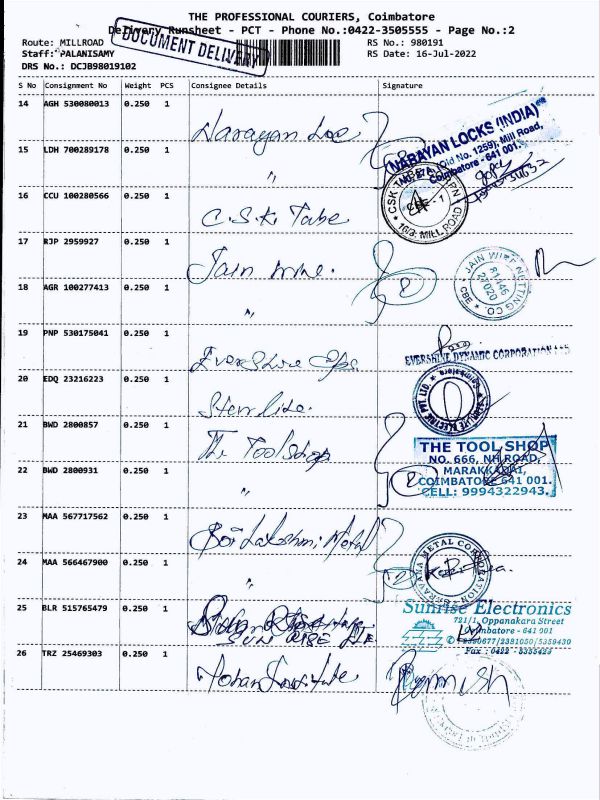 THE PROFESSIONAL COURIERS, Coimbatore
Delivery Runsheet - PCT - Phone No.:0422-3505555 - Page No.:2
DOCUMENT DELIVERY
Route: MILLROAD
RS No.: 980191
Staff: PALANISAMY
RS Date: 16-Jul-2022
DRS No.: DCJB98019102
S No Consignment No Weight PCS Consignee Details Signature
14 AGH 530080013 0.250 1 Narayan Loc
NARAYAN LOCKS (INDIA)
(Old No. 1259), Mill Road,
Coimbatore - 641 001.
15 LDH 700289178 0.250 1 "
16 CCU 100280566 0.250 1 C.S.K. Tube
16/3. MILL ROAD
17 RJP 2959927 0.250 1 Jain wire.
JAIN WIRE NETTING CO.
CBE
18 AGR 100277413 0.250 1 "
2
19 PNP 530175041 0.250 1 Evershine
EVERSHINE DYNAMIC CORPORATION
20 EDQ 23216223 0.250 1 Sterlite.
21 BWD 2800857 0.250 1 The Toolshop
THE TOOL SHOP
NO. 666, NH ROAD,
MARAKKADAI,
COIMBATORE 641 001.
CELL: 9994322943.
22 BWD 2800931 0.250 1 "
2
23 MAA 567717562 0.250 1 Sri Lakshmi Metal
24 MAA 566467900 0.250 1 "
SARAVANA METAL CORPORATION
25 BLR 515765479 0.250 1 SUN RISE ELE
Sunrise Electronics
721/1, Oppanakara Street
Coimbatore - 641 001
Fax : 0422 -
26 TRZ 25469303 0.250 1 Mohan Institute